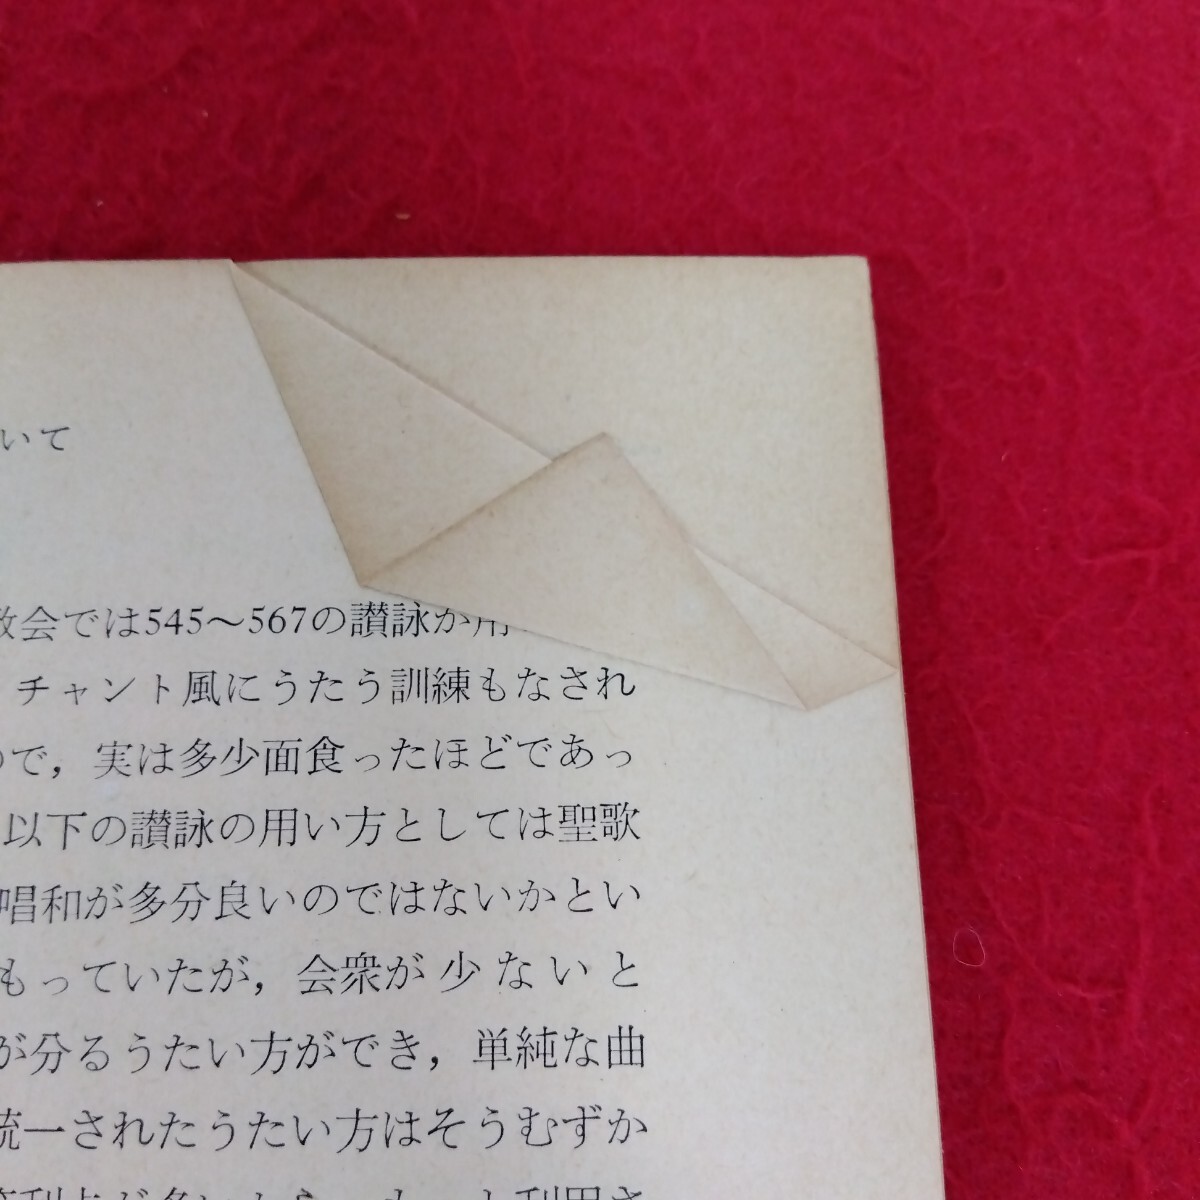 いて
教会では545〜567の讃詠が用
チャント風にうたう訓練もなされ
ので，実は多少面食ったほどであっ
以下の讃詠の用い方としては聖歌
唱和が多分良いのではないかとい
もっていたが，会衆が少ないと
が分るうたい方ができ，単純な曲
統一されたうたい方はそうむずか